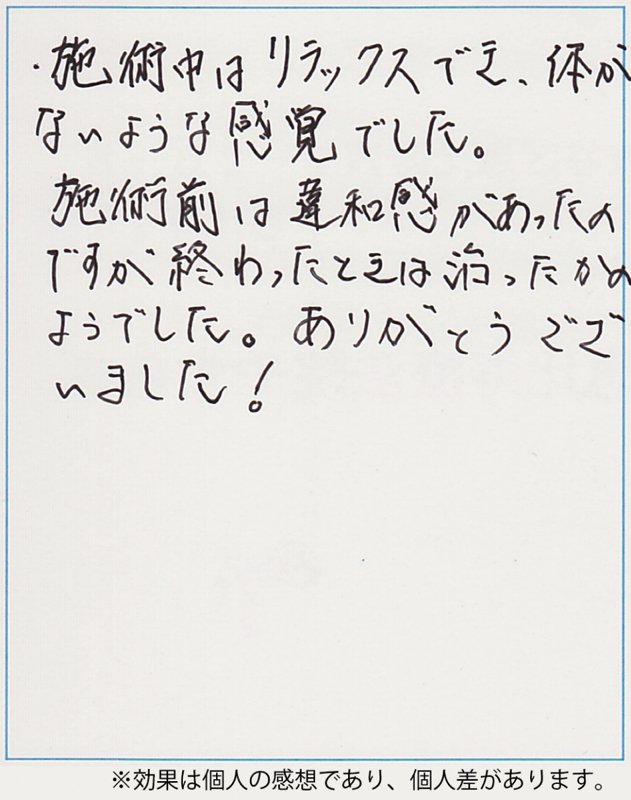 ・施術中はリラックスでき、体が
ないような感覚でした。
施術前は違和感があったの
ですが終わったときは治ったかの
ようでした。ありがとうござ
いました!
※効果は個人の感想であり、個人差があります。